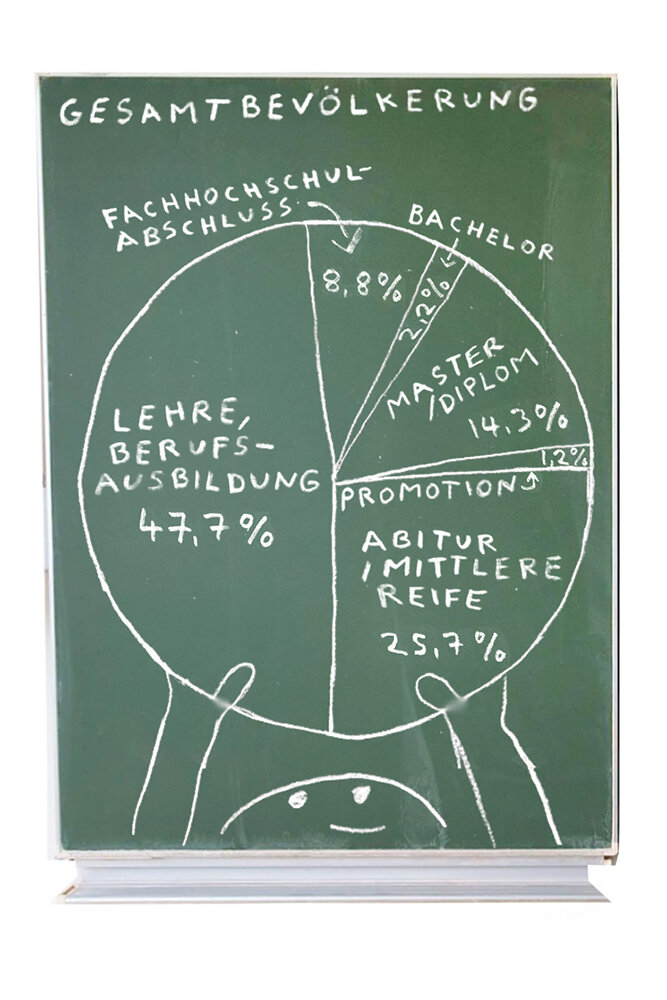 GESAMTBEVÖLKERUNG
FACHHOCHSCHUL-
ABSCHLUSS
8,8%
BACHELOR
2,2%
MASTER
/DIPLOM
14,3%
1,2%
PROMOTION
LEHRE,
BERUFS-
AUSBILDUNG
47,7%
ABITUR
/MITTLERE
REIFE
25,7%